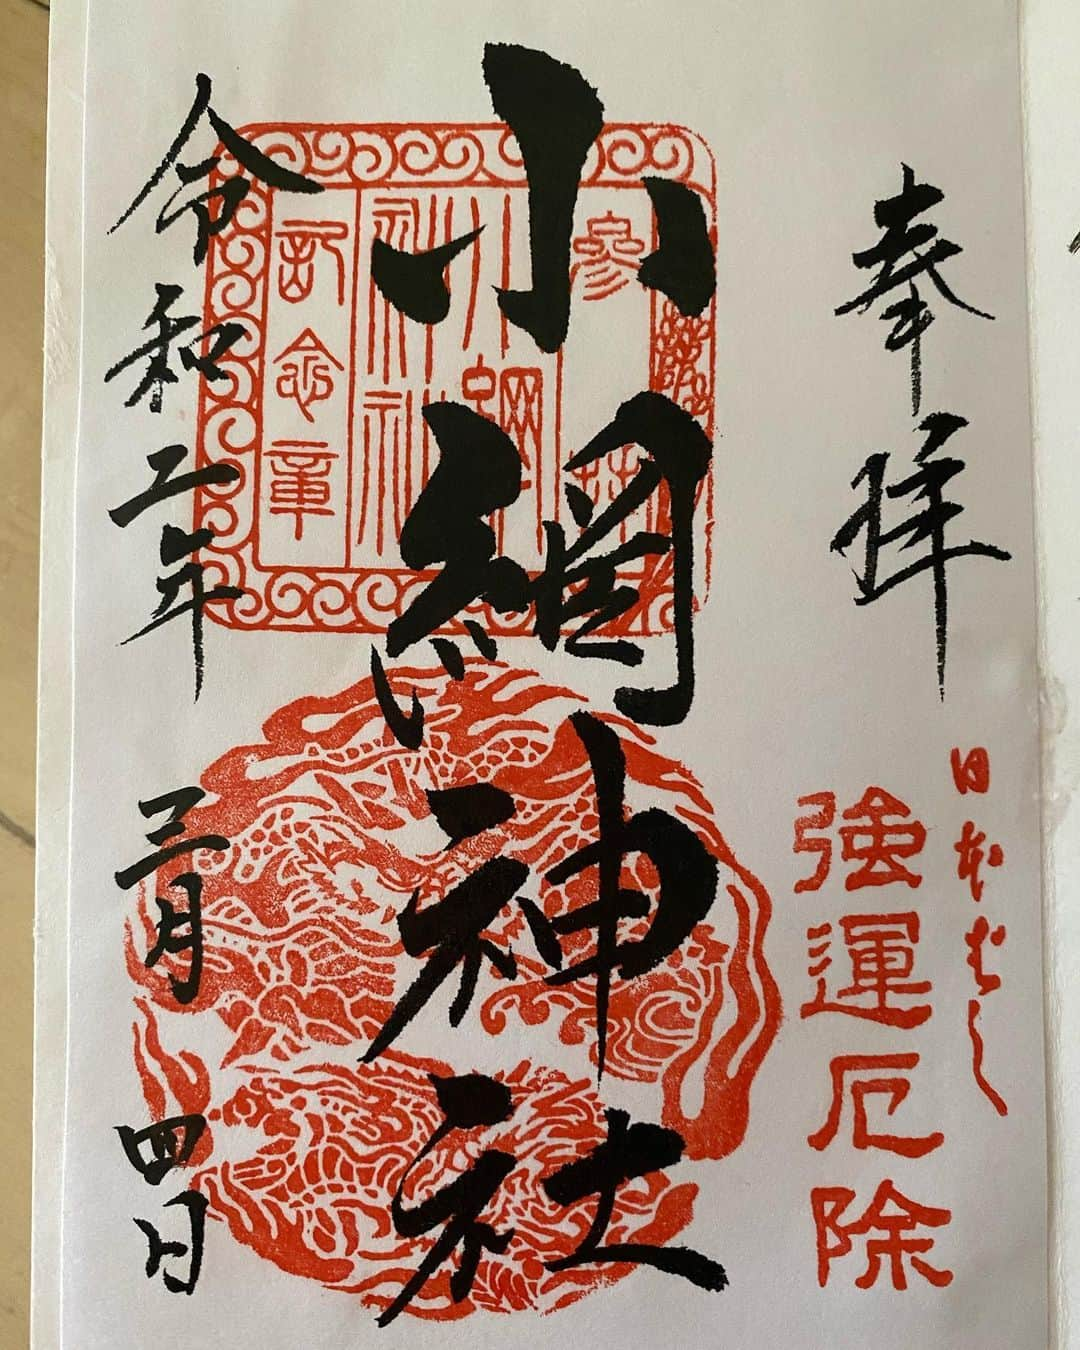 奉拝
日本ばし
強運厄除
小網神社
參拜
小網神社
記念章
令和二年三月四日